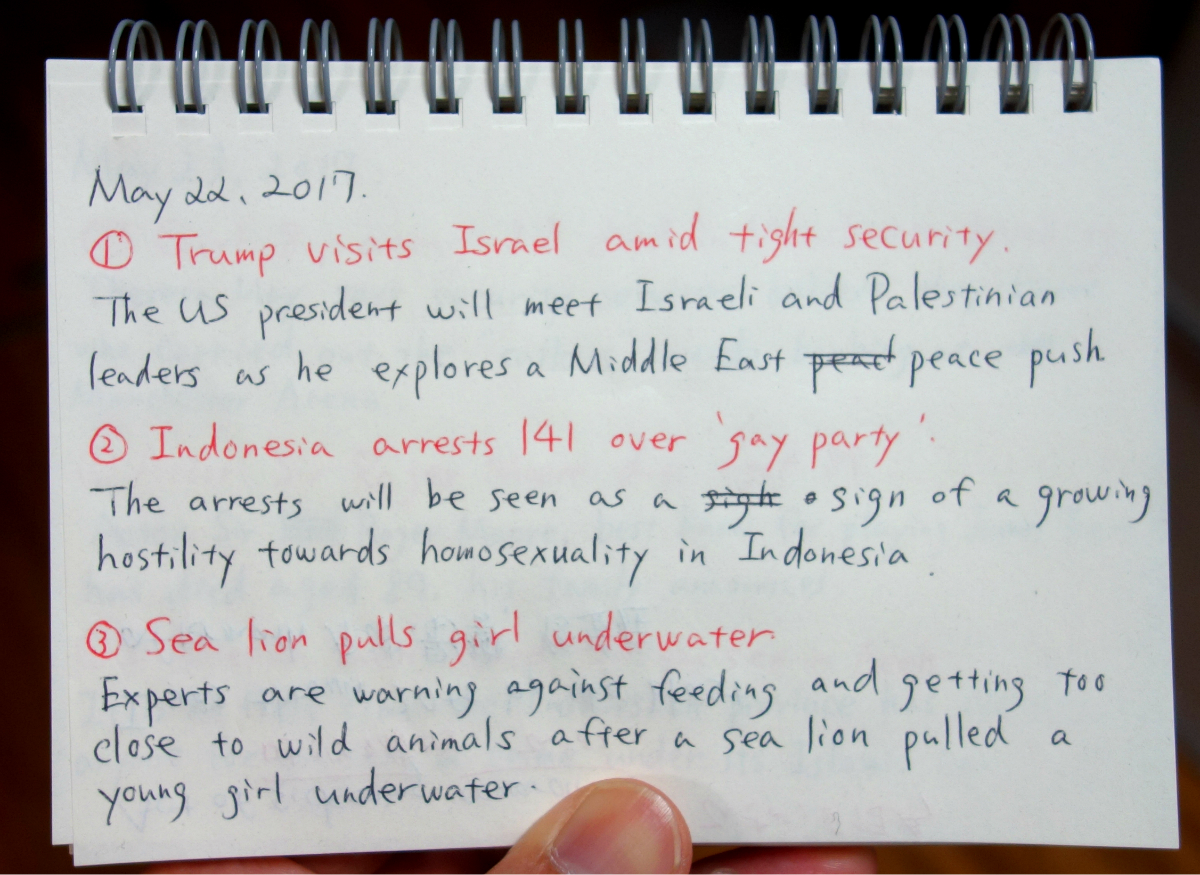 May 22, 2017.
① Trump visits Israel amid tight security.
The US president will meet Israeli and Palestinian
leaders as he explores a Middle East peact peace push
② Indonesia arrests 141 over 'gay party'.
The arrests will be seen as a sigh sign of a growing
hostility towards homosexuality in Indonesia.
③ Sea lion pulls girl underwater.
Experts are warning against feeding and getting too
close to wild animals after a sea lion pulled a
young girl underwater.